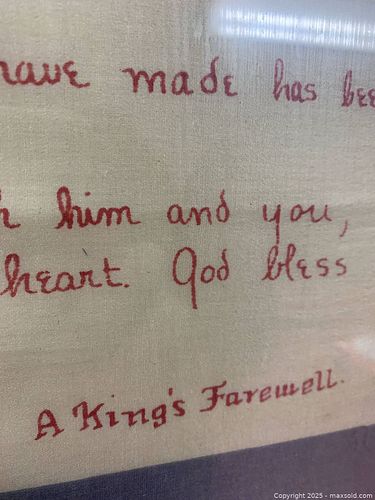 have made has bee
h him and you,
heart. God bless
A King's Farewell.
Copyright 2025 - maxsold.com